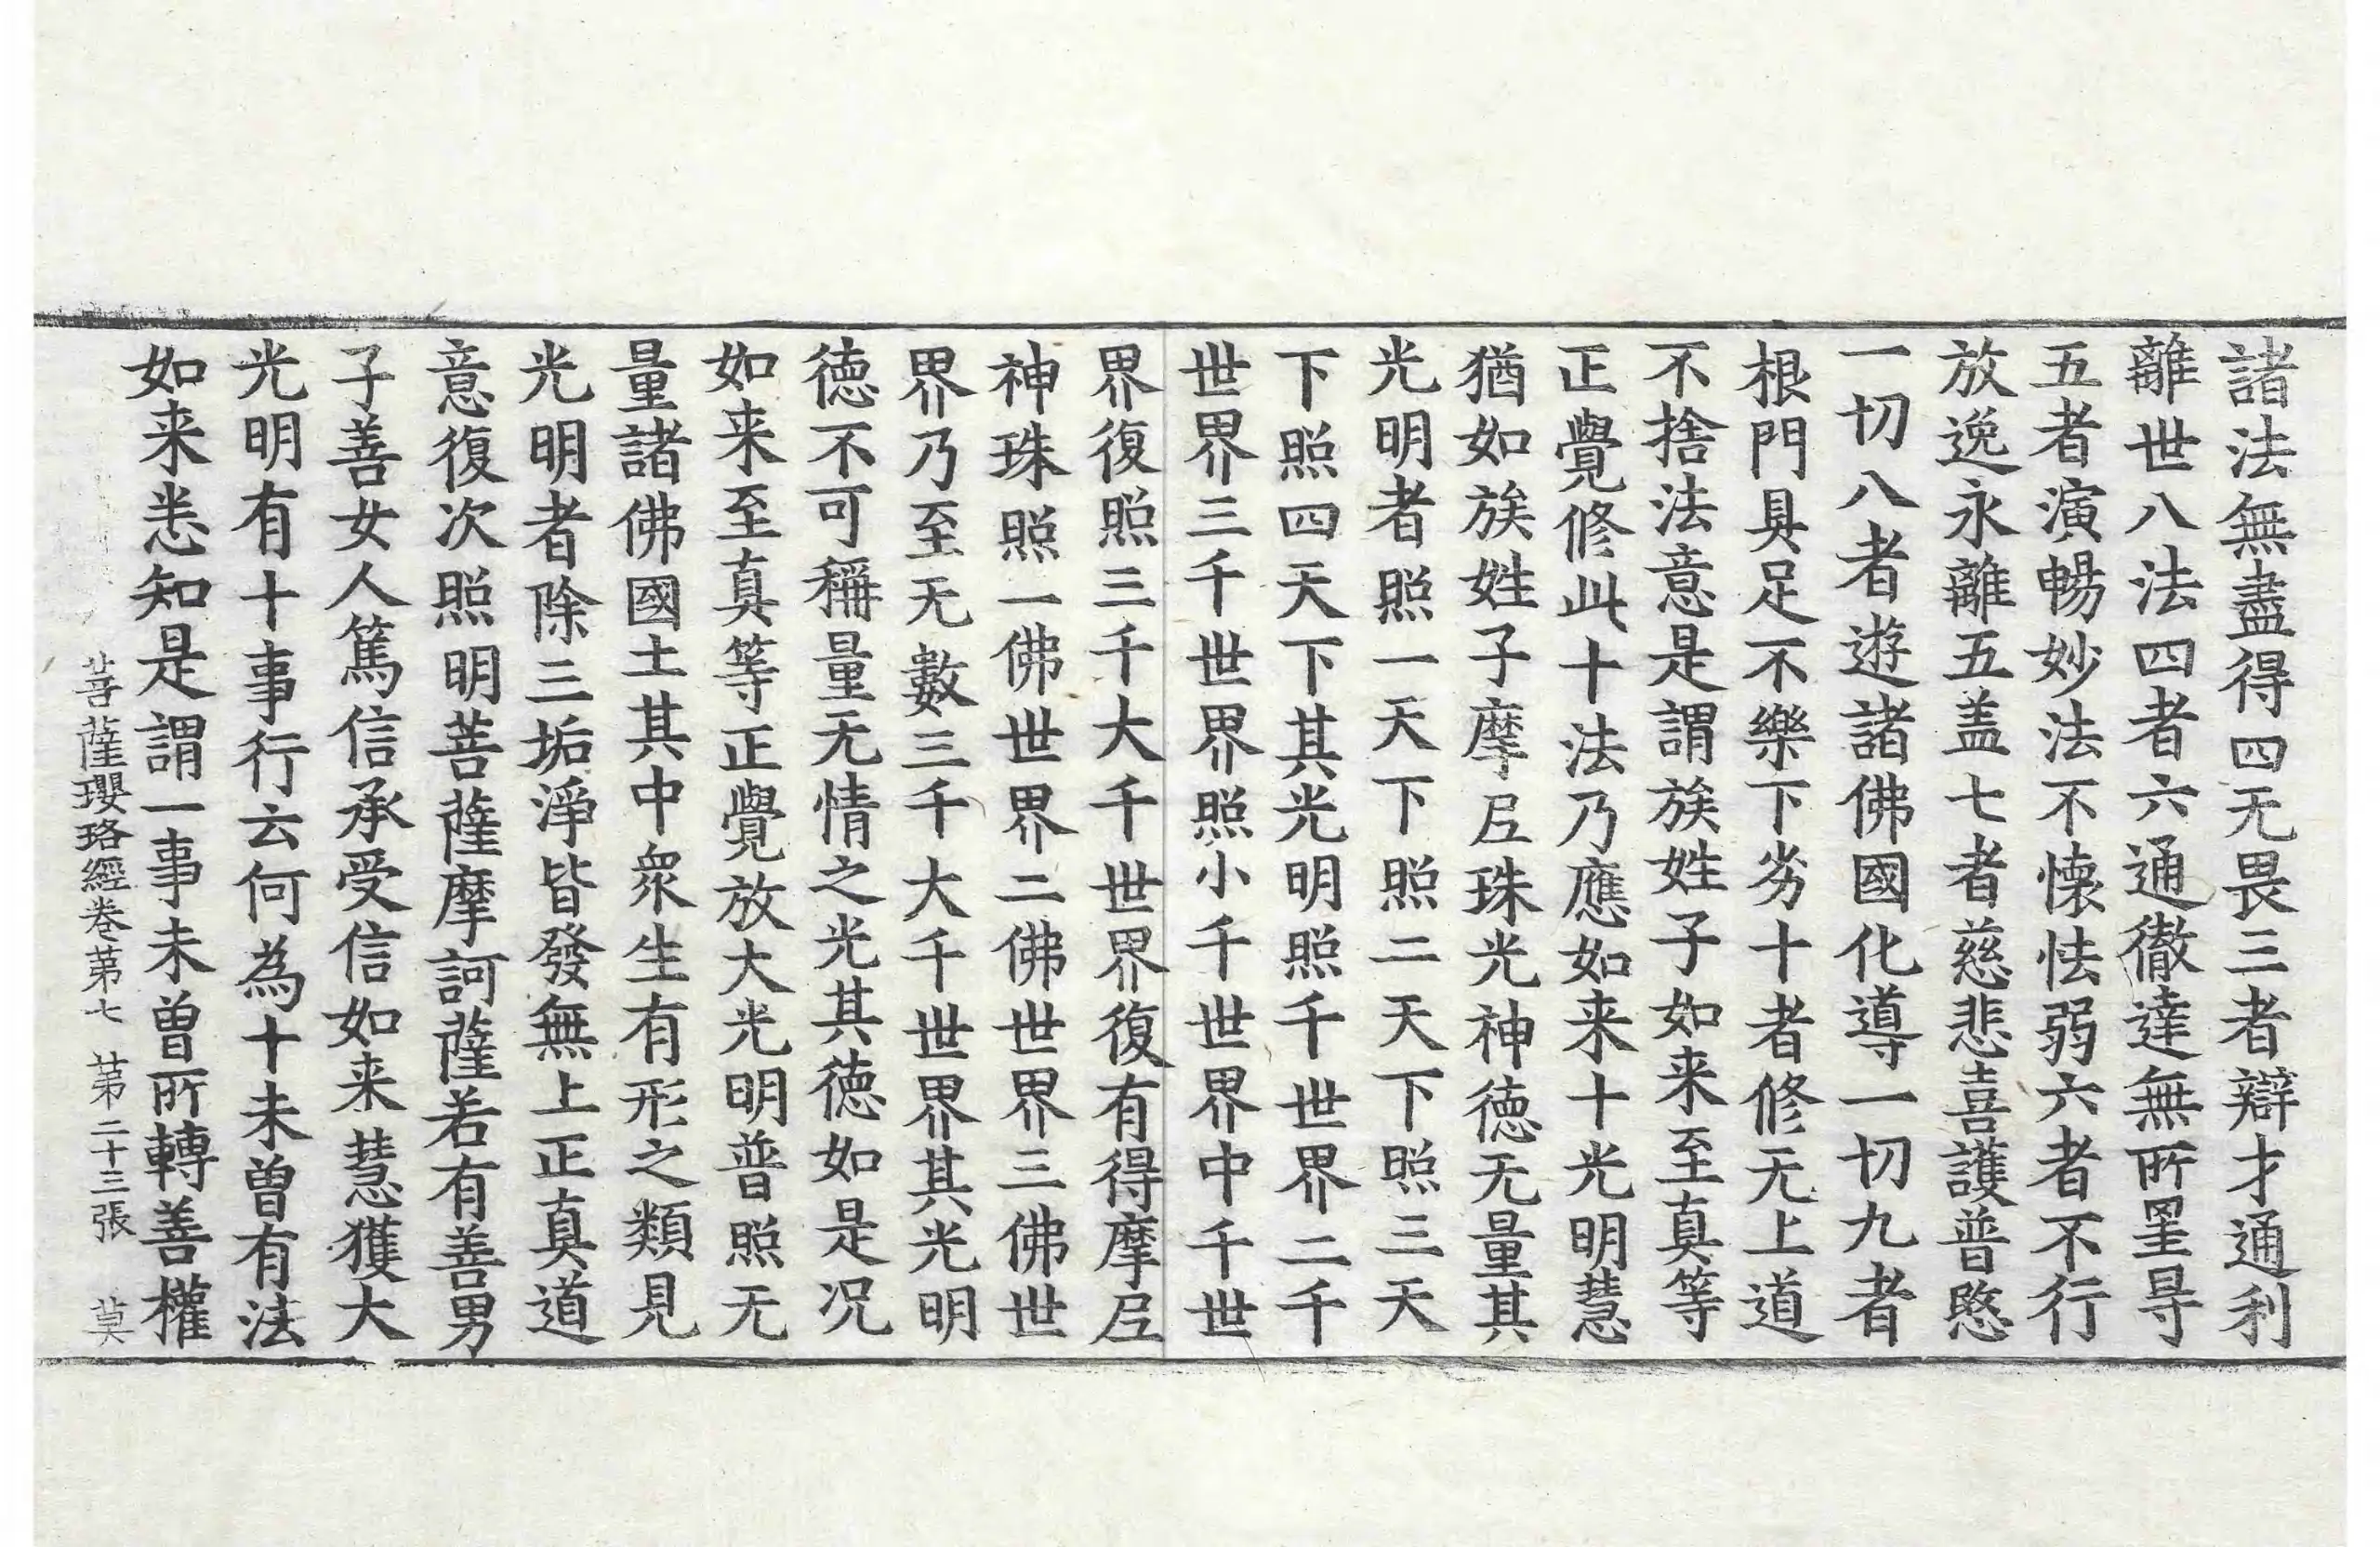 諸法無盡得四无畏三者辯才通利
離世八法四者六通徹達無所罣㝵
五者演暢妙法不懷怯弱六者不行
放逸永離五盖七者慈悲喜護普愍
一切八者遊諸佛國化導一切九者
根門具足不樂下劣十者修无上道
不捨法意是謂族姓子如来至真等
正覺修此十法乃應如来十光明慧
猶如族姓子摩𡰱珠光神德无量其
光明者照一天下照二天下照三天
下照四天下其光明照千世界二千
世界三千世界照小千世界中千世
界復照三千大千世界復有得摩𡰱
神珠照一佛世界二佛世界三佛世
界乃至无數三千大千世界其光明
德不可稱量无情之光其德如是况
如来至真等正覺放大光明普照无
量諸佛國土其中衆生有形之類見
光明者除三垢淨皆發無上正真道
意復次照明菩薩摩訶薩若有善男
子善女人篤信承受信如来慧獲大
光明有十事行云何為十未曾有法
如来悉知是謂一事未曾所轉善權
菩薩瓔珞經卷第七 第二十三張 莫